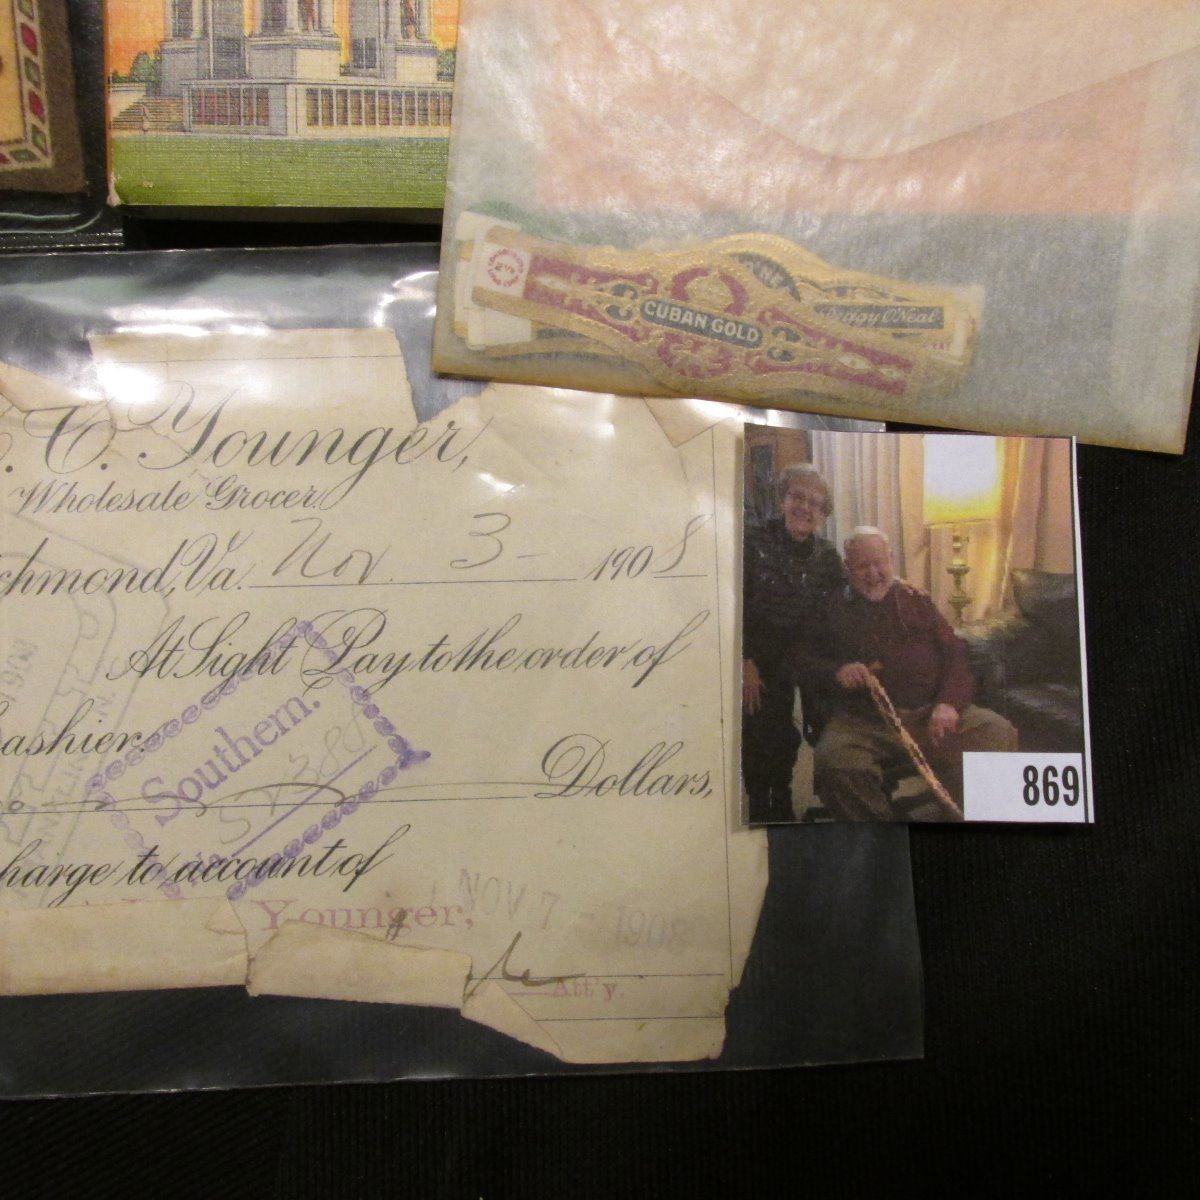 CUBAN GOLD
Peggy O'Neal
. C. Younger,
Wholesale Grocer.
chmond, Va. Nov. 3- 1908
At Sight Pay to the order of
ashier.
Southern.
Dollars,
harge to account of
Younger,
NOV 7 - 1908
Att'y.
869